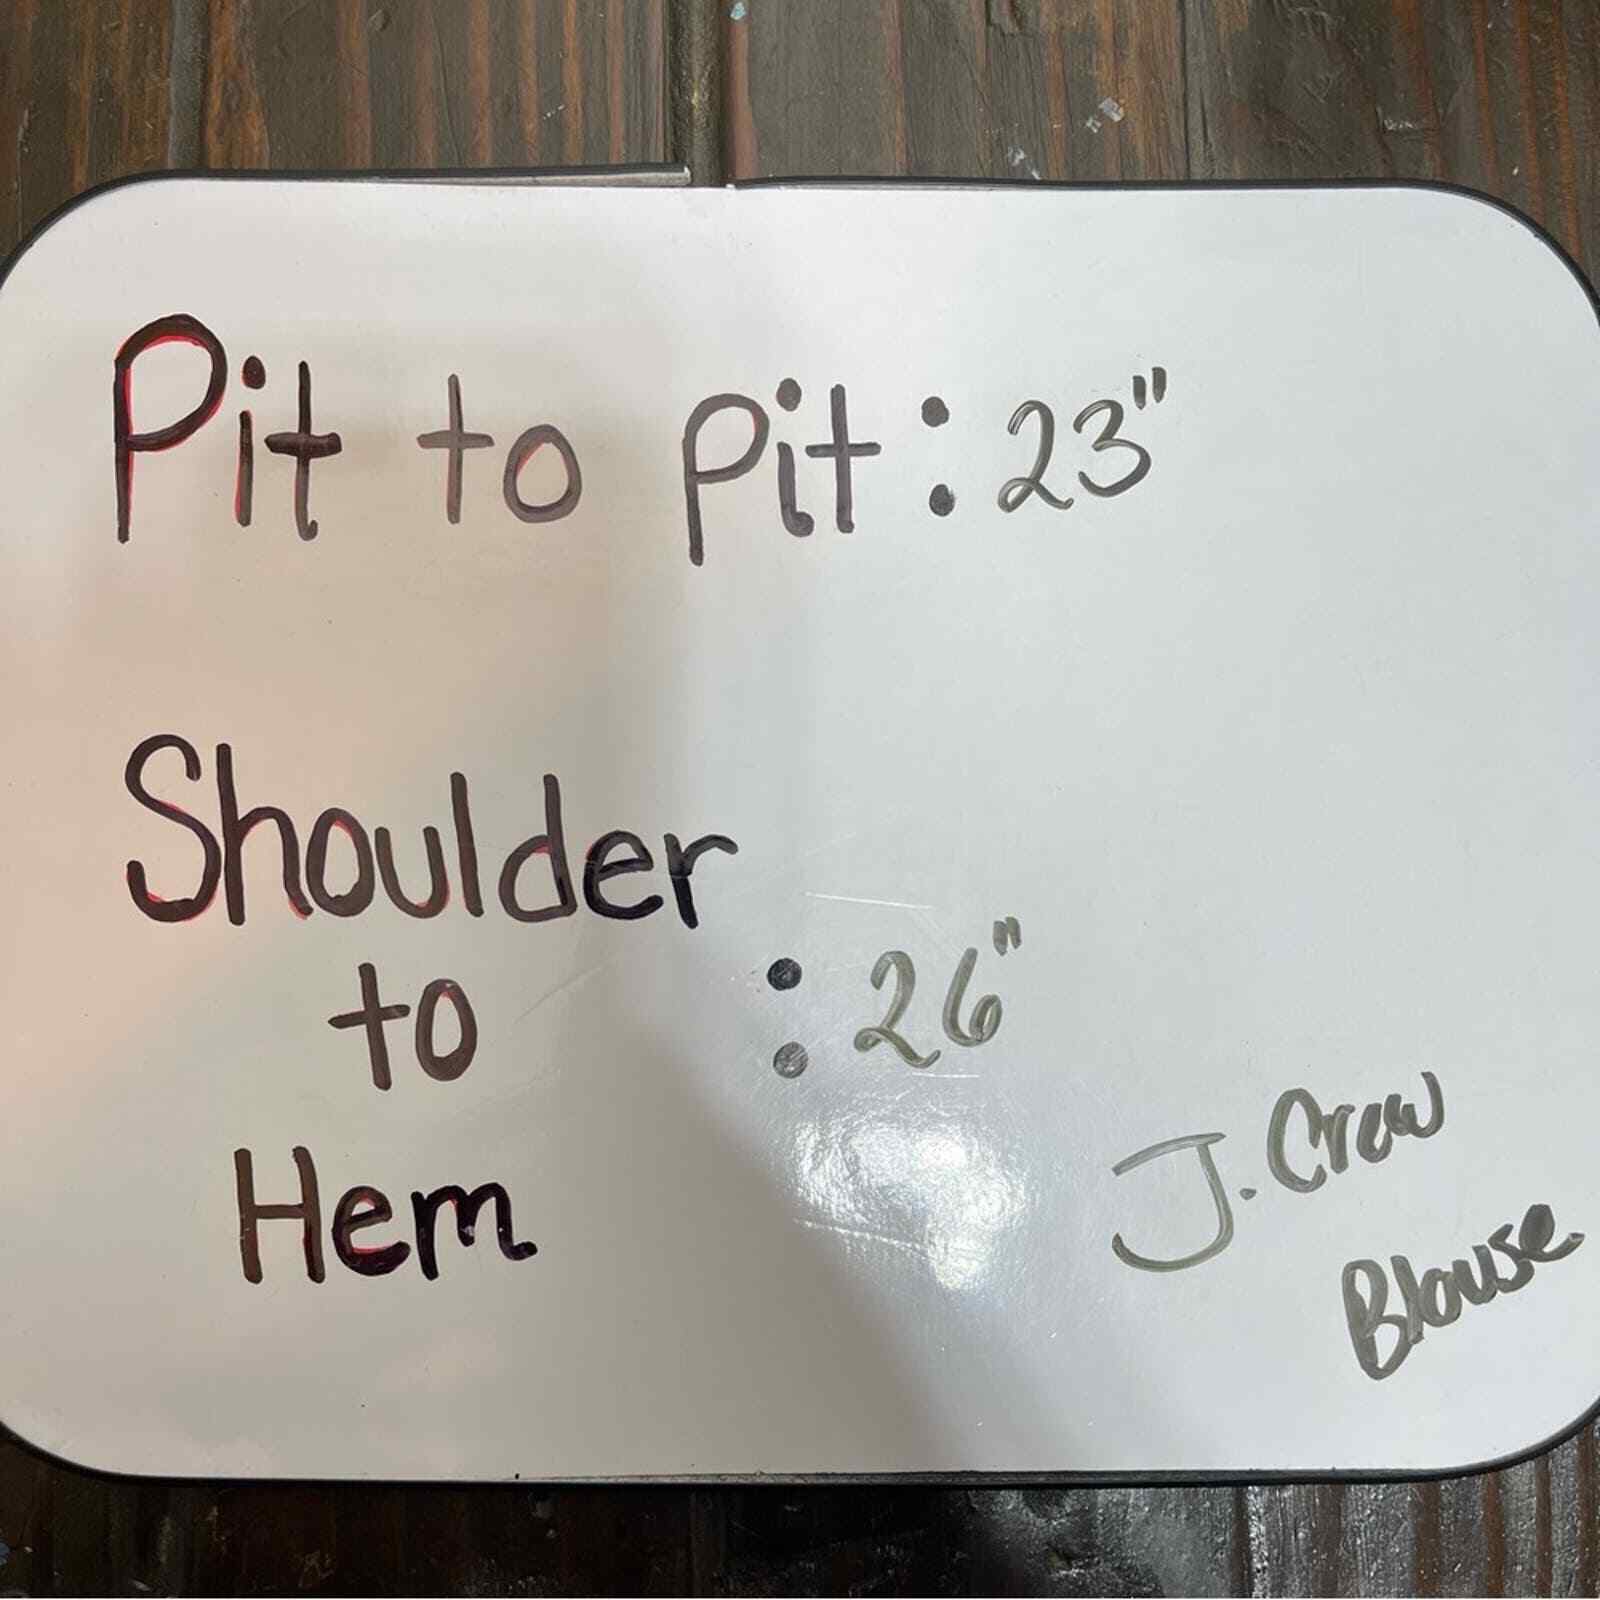 Pit to pit : 23"
Shoulder
to : 26"
Hem
J. Crew
Blouse